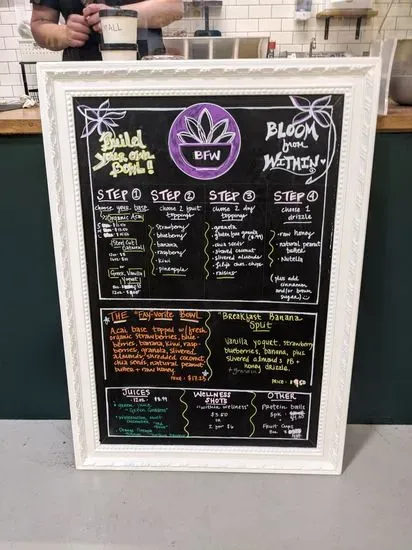 ALL
Build your own Bowl!
BFW
BLOOM from WITHIN
STEP 1
choose your base
Organic Acai
Steel Cut Oatmeal
Greek Vanilla Yogurt
STEP 2
choose 2 fruit toppings
strawberry
blueberry
banana
raspberry
kiwi
pineapple
STEP 3
choose 2 dry toppings
granola
chia seeds
shaved coconut
slivered almonds
raisins
STEP 4
choose 1 drizzle
raw honey
natural peanut butter
Nutella
(plus add cinnamon and/or brown sugar)
THE "Fay-vorite Bowl"
Acai base topped w/ fresh
organic strawberries, blue
berries, banana, kiwi, rasp
berries, granola, slivered
almonds, shredded coconut
chia seeds, natural peanut
butter + raw honey
PRICE: $17.25
"Breakfast Banana Split"
Vanilla yogurt, strawberry
blueberries, banana, plus
slivered almonds, PB +
honey drizzle.
+ granola
PRICE:
JUICES
12oz. $8.99
green juice
"Green Goddess"
WELLNESS SHOTS
"Warrior Wellness"
$3.50
or
2 for $6
OTHER
Protein balls
Fruit Cups